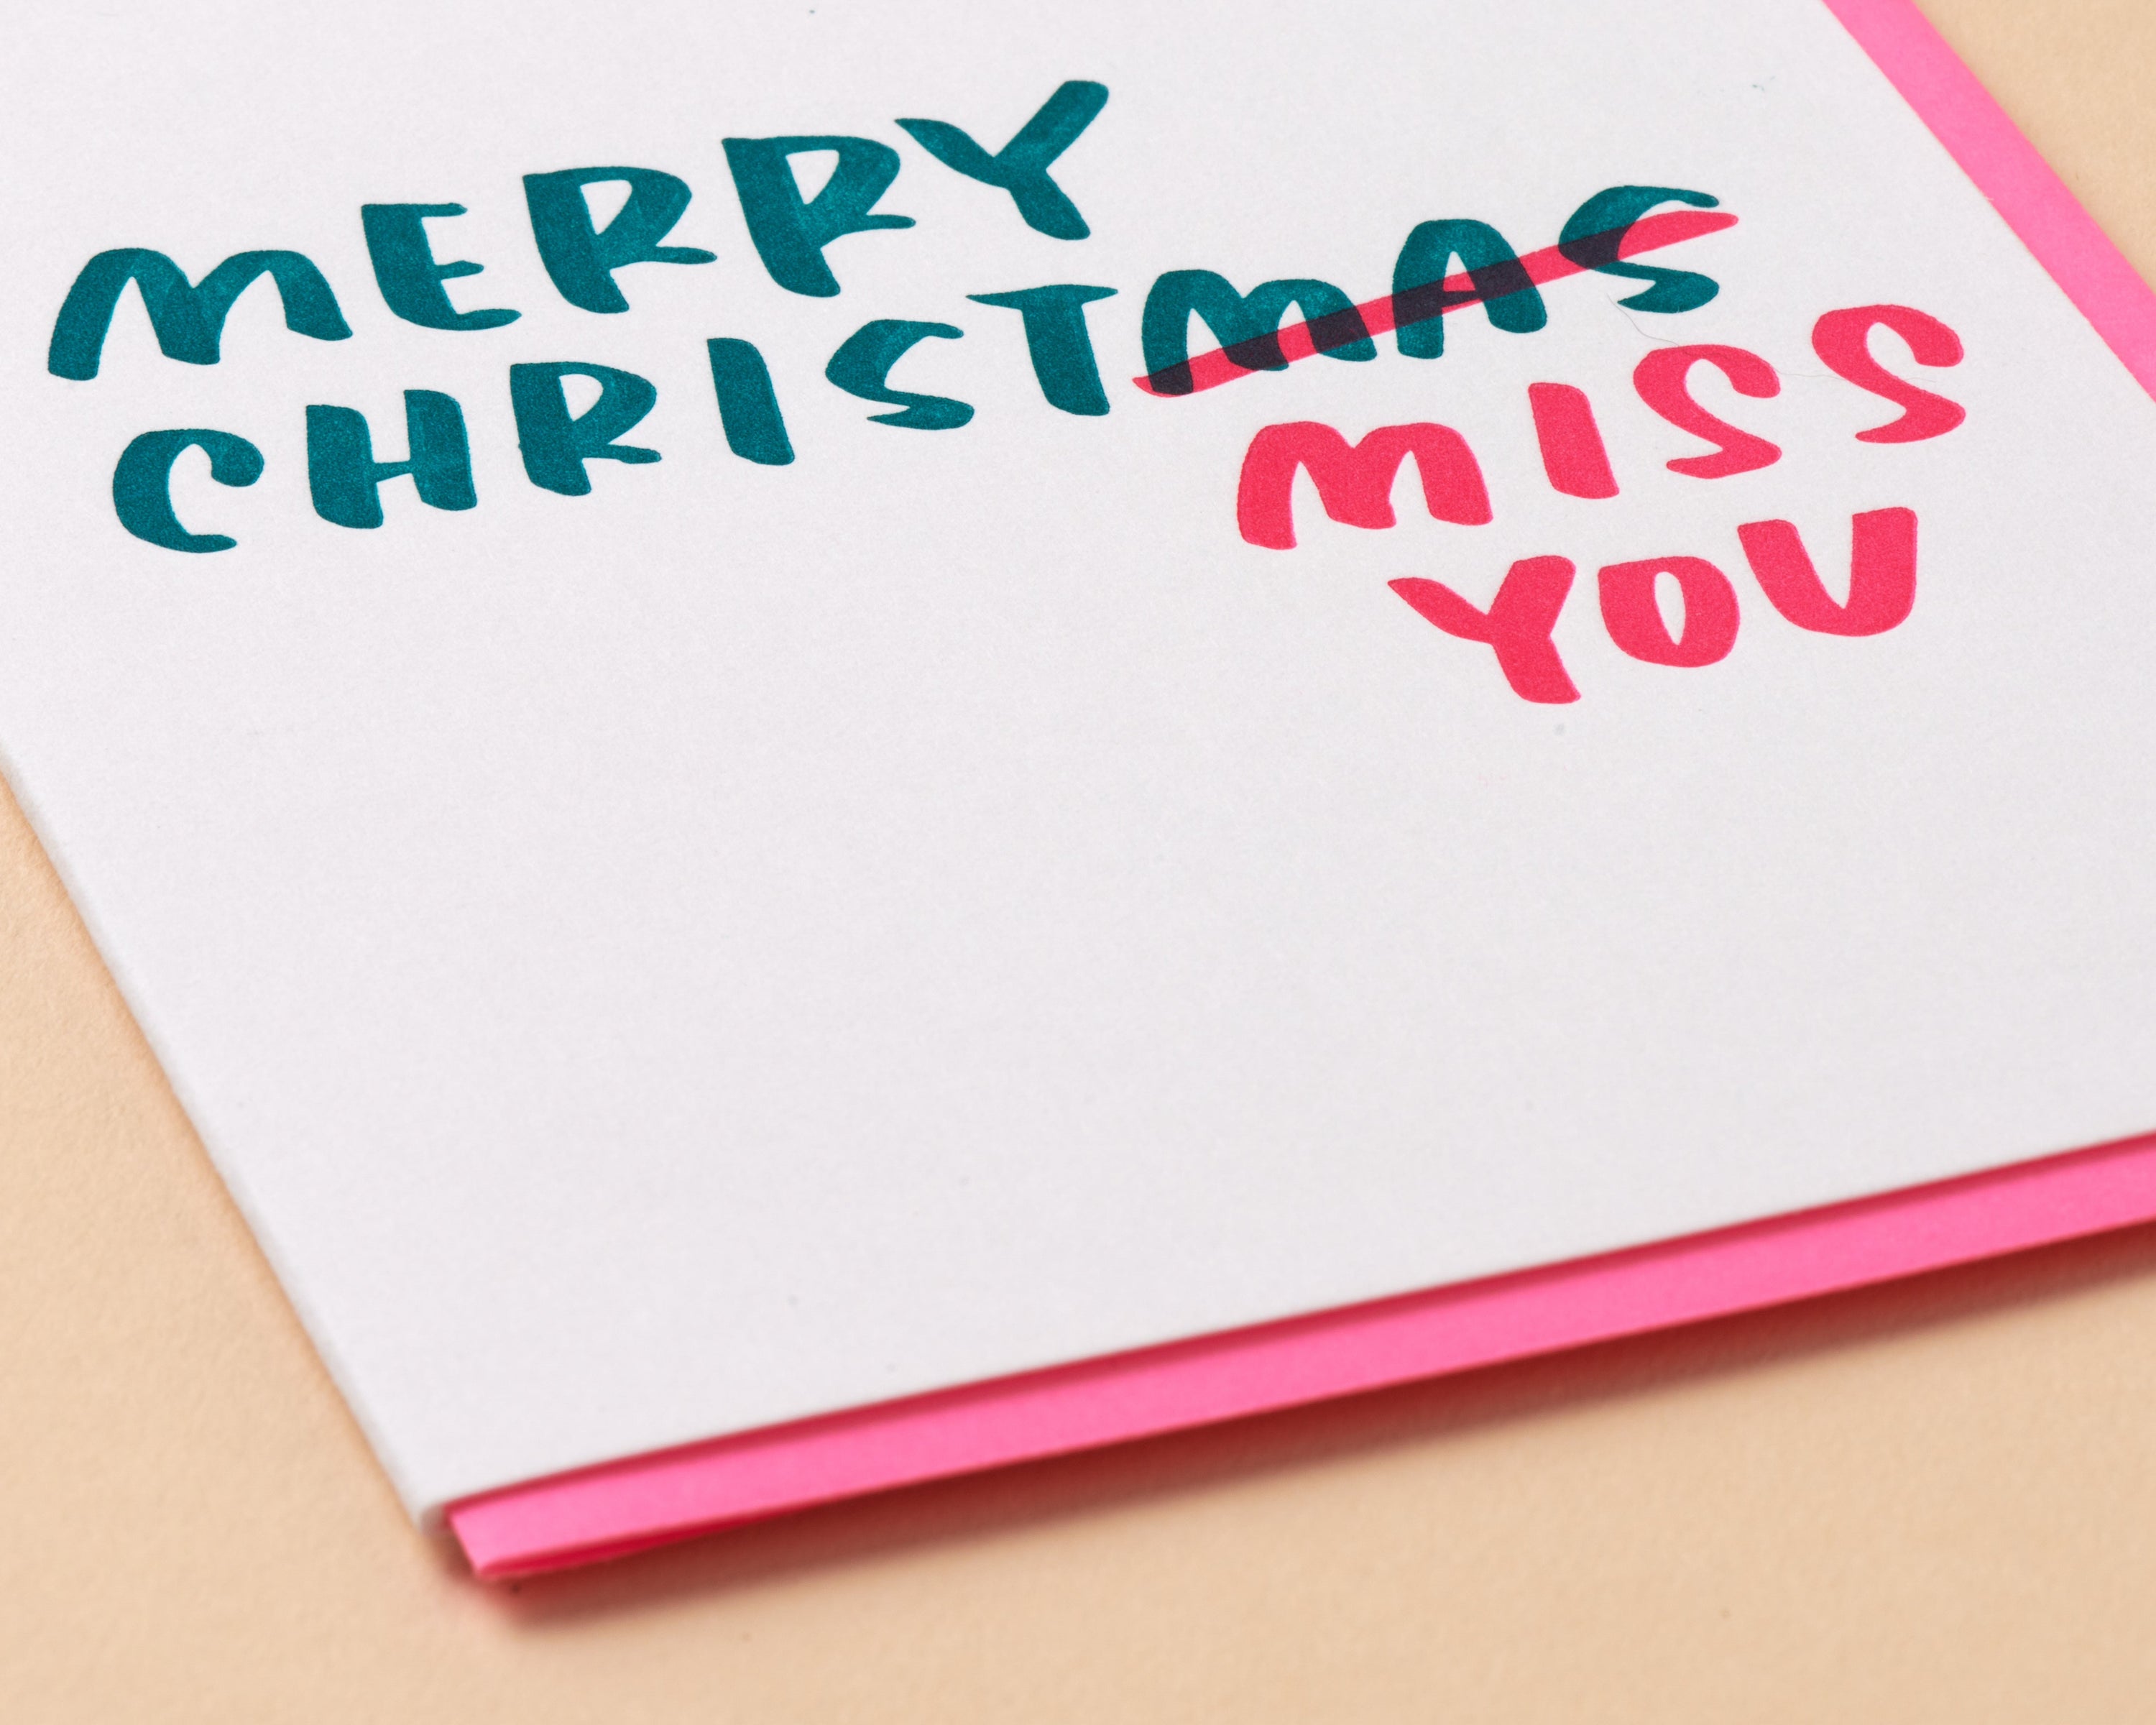 MERRY
CHRISTMAS
MISS
YOU